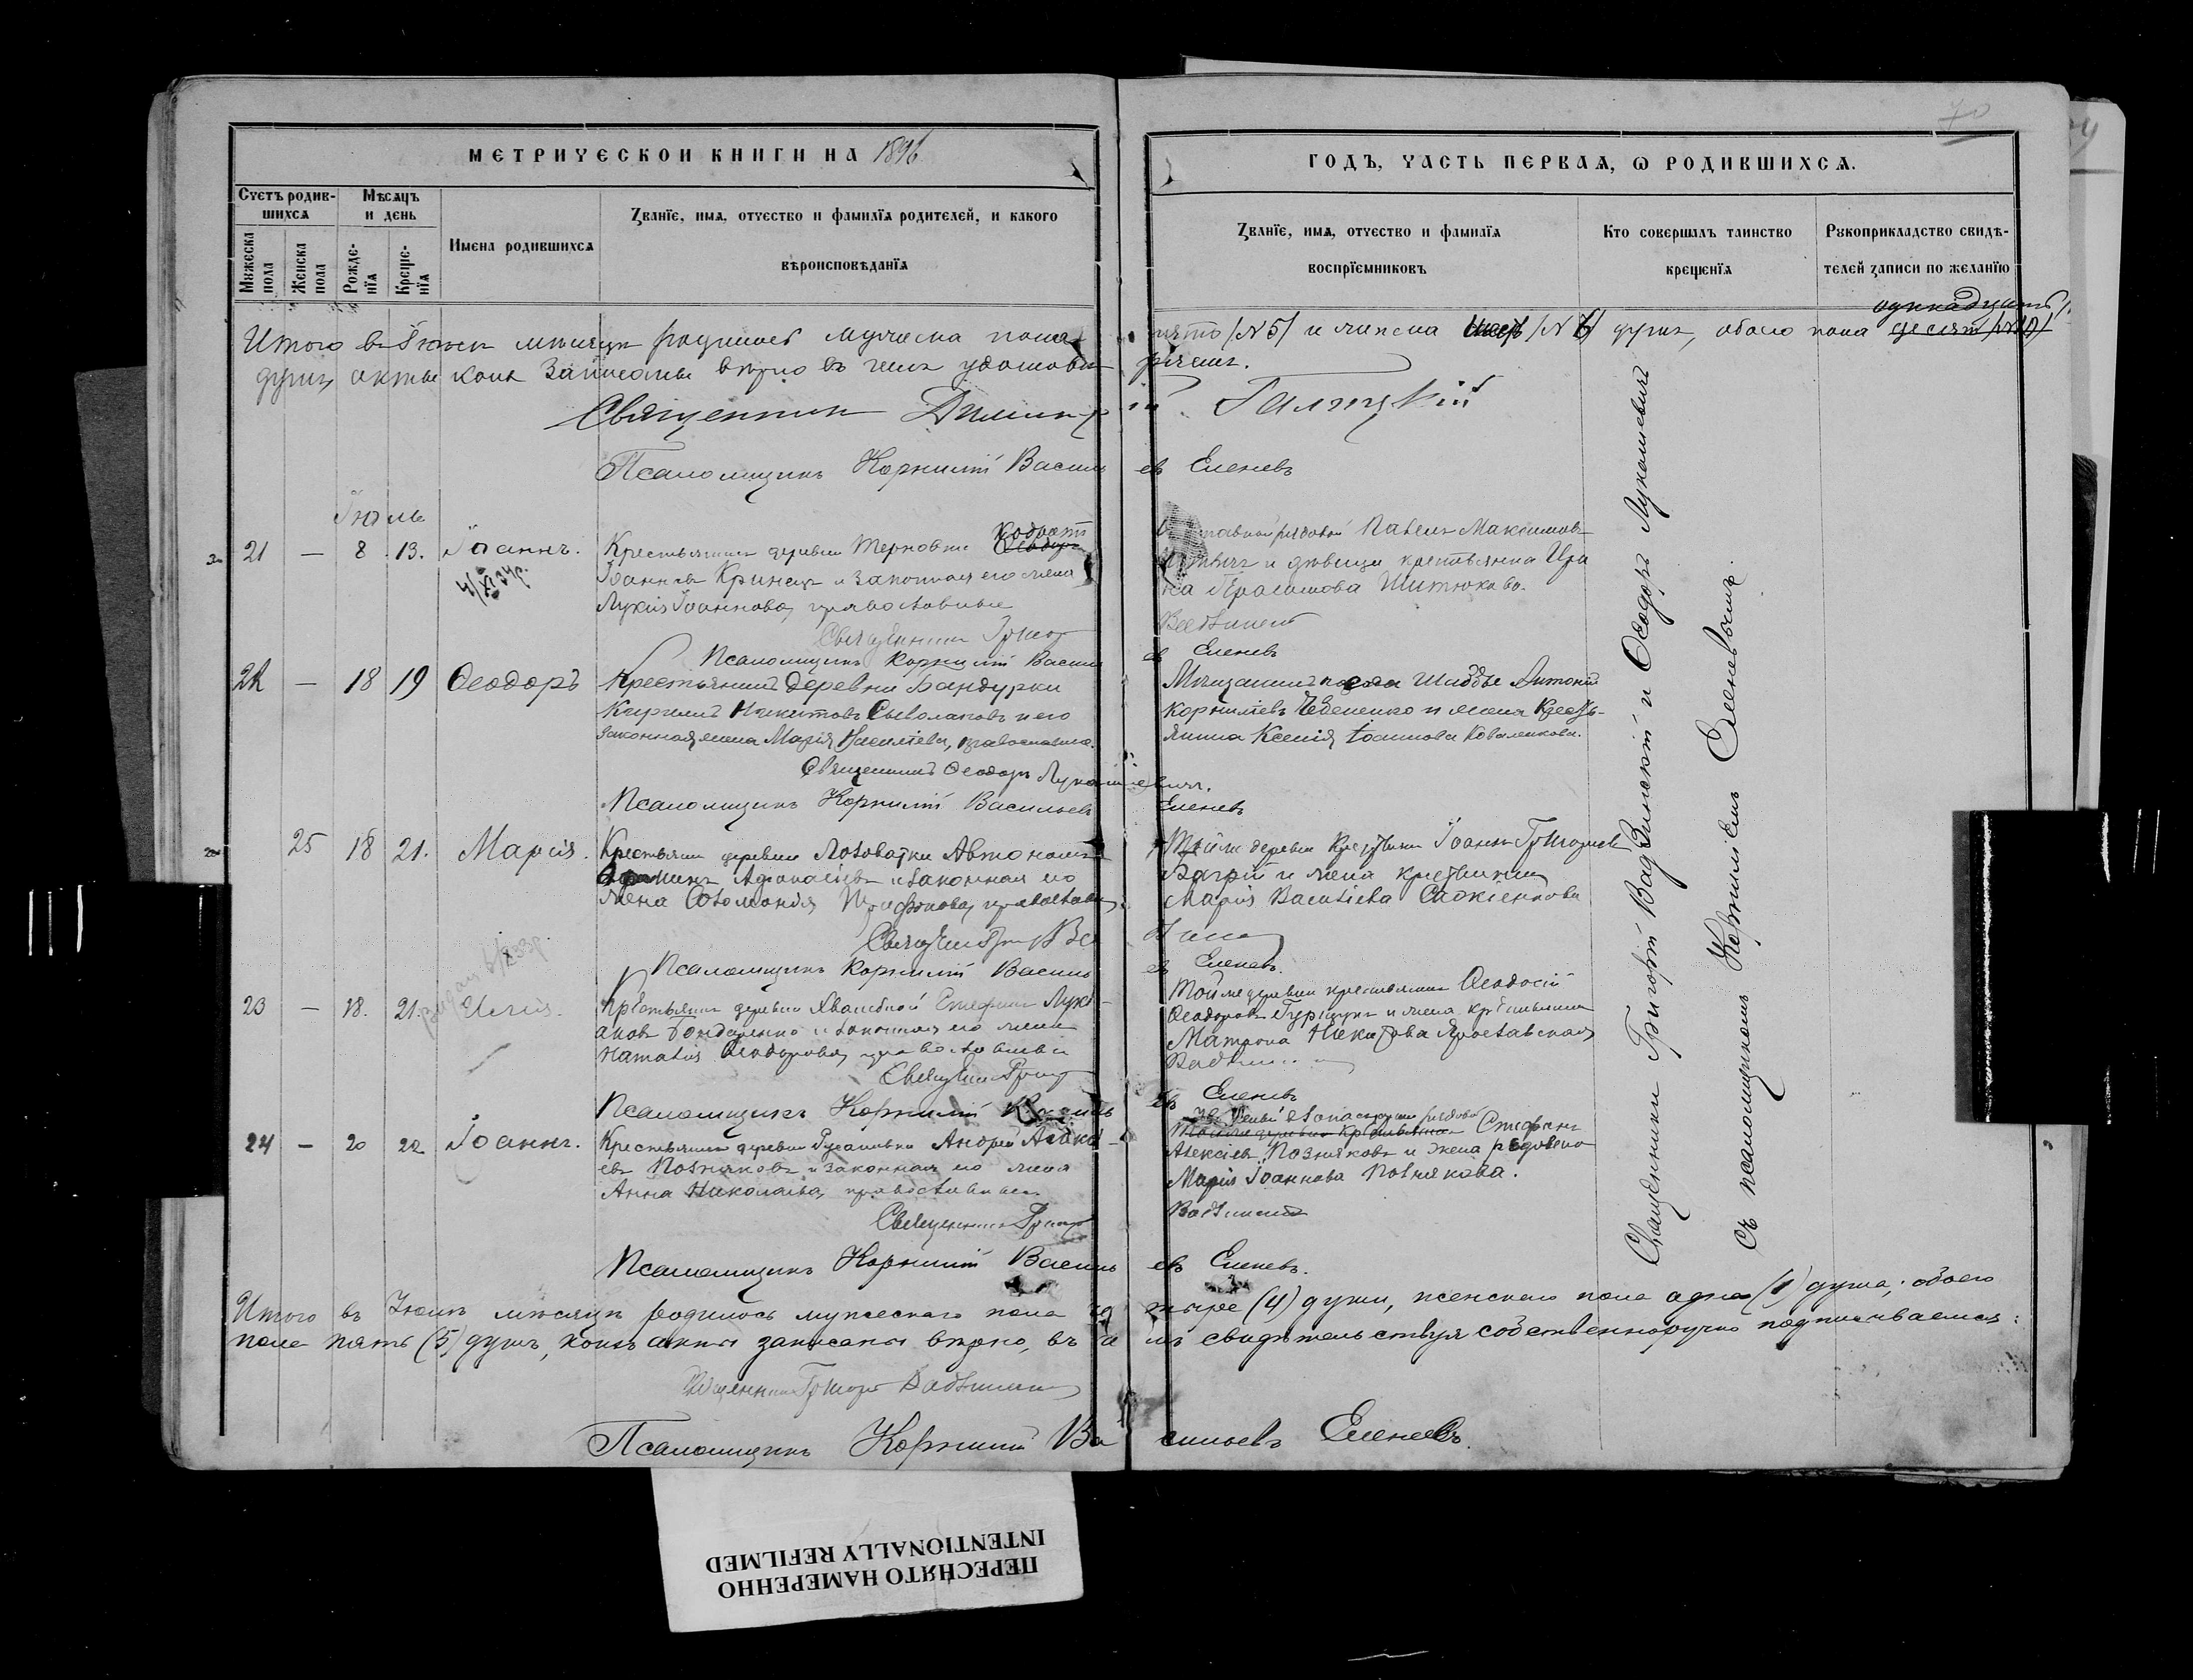 МЕТРИЧЕСКОЙ КНИГИ НА 1896
ГОДЪ, ЧАСТЬ ПЕРВАЯ, Ѡ РОДИВШИХСЯ.
70
Счетъ родив-
шихся
Мужеска
пола
Женска
пола
Мѣсяцъ
и день
Рожде-
нія
Креще-
нія
Имена родившихся
Званіе, имя, отчество и фамилія родителей, и какого
вѣроисповѣданія
Званіе, имя, отчество и фамилія
воспріемниковъ
Кто совершалъ таинство
крещенія
Рукоприкладство свидѣ-
телей записи по желанію
одинадцать
Итого въ Іюнѣ мѣсяцѣ родилось мужеска пола пять /N 5/ и женска /N 6/ душъ, обоего пола десять /N 10/
душъ, акты коихъ записаны вѣрно въ чемъ удостовѣряемъ.
Священникъ Димитрій Галицкій
Псаломщикъ Корнилій Васильевъ Еленевъ
Іюль
21 — 8 13. Іоаннъ.
4/XI 34р.
Крестьянинъ деревни Терновки Кодратъ
Іоанновъ Кринецъ и законная его жена
Лукія Іоаннова, православные
Павелъ Максимовъ
и дѣвица крестьянка Ири
на Герасимова Шитюкова.
Священникъ Григорій Вадзинскій
Псаломщикъ Корнилій Васильевъ Еленевъ
22 — 18 19 Ѳеодоръ
Крестьянинъ деревни Бандурки
Кириллъ Никитовъ Сыволаповъ и его
законная жена Марія Василіева, православные.
Мѣщанинъ Шабды Антоній
Корниліевъ Чебененко и жена Кресть-
янина Ксенія Іоаннова Коваленкова.
Священникъ Ѳеодоръ Лукашевичъ.
Псаломщикъ Корнилій Васильевъ Еленевъ
25 18 21. Марія.
Крестьянинъ деревни Лозоватки Автономъ
Афанасіевъ и законная его
жена Соломонія Трифонова, православн
Той же деревни крестьянинъ Іоаннъ Григоріевъ
Багрій и жена крестьянина
Марія Василіева Сажіенкова
Псаломщикъ Корнилій Васильевъ Еленевъ.
23 — 18. 21. Илія.
Крестьянинъ деревни Стефанъ Луки-
ановъ Бондаренко и законная его жена
Наталія Ѳеодорова, православные
Той же деревни крестьянинъ Ѳеодосій
Ѳеодоровъ Гурщукъ и жена крестьянина
Матрона Никитова Ярославская
Священникъ Григорій Вадзинскій
Псаломщикъ Корнилій Василь евъ Еленевъ
24 — 20 22 Іоаннъ.
Крестьянинъ деревни Андрей Алексі-
евъ Позняковъ и законная его жена
Анна Николаева, православные
запаса рядовой Стефанъ
Алексіевъ Позняковъ и жена рядового
Марія Іоаннова Познякова.
Священникъ Григорій Вадзинскій
Псаломщикъ Корнилій Васильевъ Еленевъ.
Священники Григорій Вадзинскій и Ѳеодоръ Лукашевичъ
съ псаломщикомъ Корниліемъ Еленевымъ.
Итого въ Іюлѣ мѣсяцѣ родилось мужескаго пола четыре (4) души, женскаго пола одна (1) душа; обоего
пола пять (5) душъ, коихъ акты записаны вѣрно, въ чемъ свидѣтельствуя собственноручно подписываемся:
Священникъ Григорій Вадзинскій
Псаломщикъ Корнилій Васильевъ Еленевъ.
ПЕРЕСНЯТО НАМЕРЕННО
INTENTIONALLY REFILMED